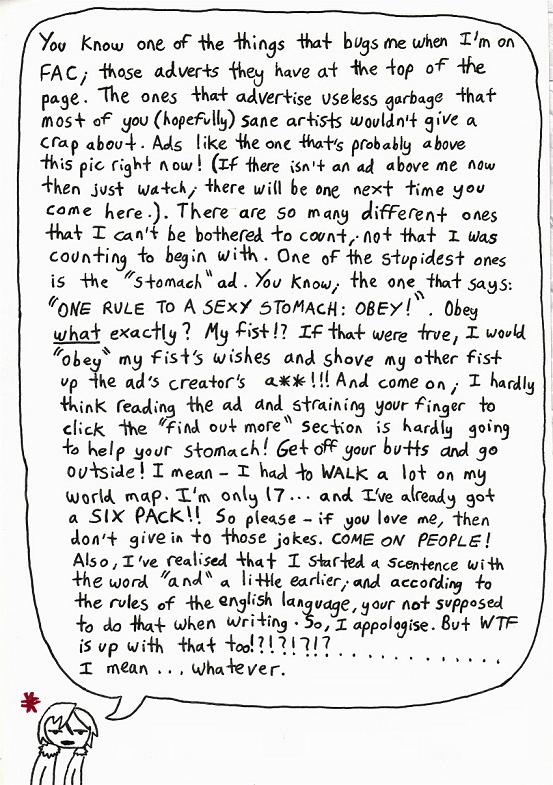 You know one of the things that bugs me when I'm on
FAC; those adverts they have at the top of the
page. The ones that advertise useless garbage that
most of you (hopefully) sane artists wouldn't give a
crap about. Ads like the one that's probably above
this pic right now! (If there isn't an ad above me now
then just watch; there will be one next time you
come here.). There are so many different ones
that I can't be bothered to count; not that I was
counting to begin with. One of the stupidest ones
is the "stomach" ad. You know; the one that says:
"ONE RULE TO A SEXY STOMACH: OBEY!". Obey
what exactly? My fist!? If that were true, I would
"obey" my fist's wishes and shove my other fist
up the ad's creator's a**!!! And come on; I hardly
think reading the ad and straining your finger to
click the "find out more" section is hardly going
to help your stomach! Get off your butts and go
outside! I mean - I had to WALK a lot on my
world map. I'm only 17... and I've already got
a SIX PACK!! So please - if you love me, then
don't give in to those jokes. COME ON PEOPLE!
Also, I've realised that I started a scentence with
the word "and" a little earlier; and according to
the rules of the english language, your not supposed
to do that when writing. So, I appologise. But WTF
is up with that too!?!?!?!?..............
I mean... whatever.